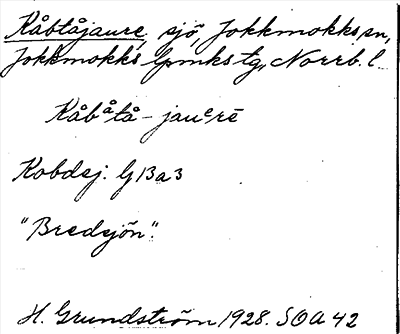 Kåbtåjaure, sjö, Jokkmokks sn,
Jokkmokks lpmks tg, Norrb. l.
Kåbᵃ̊tå-jauᵉrē
Kobdsj. G13a3
"Bredsjön".
H. Grundström 1928. SOA 42